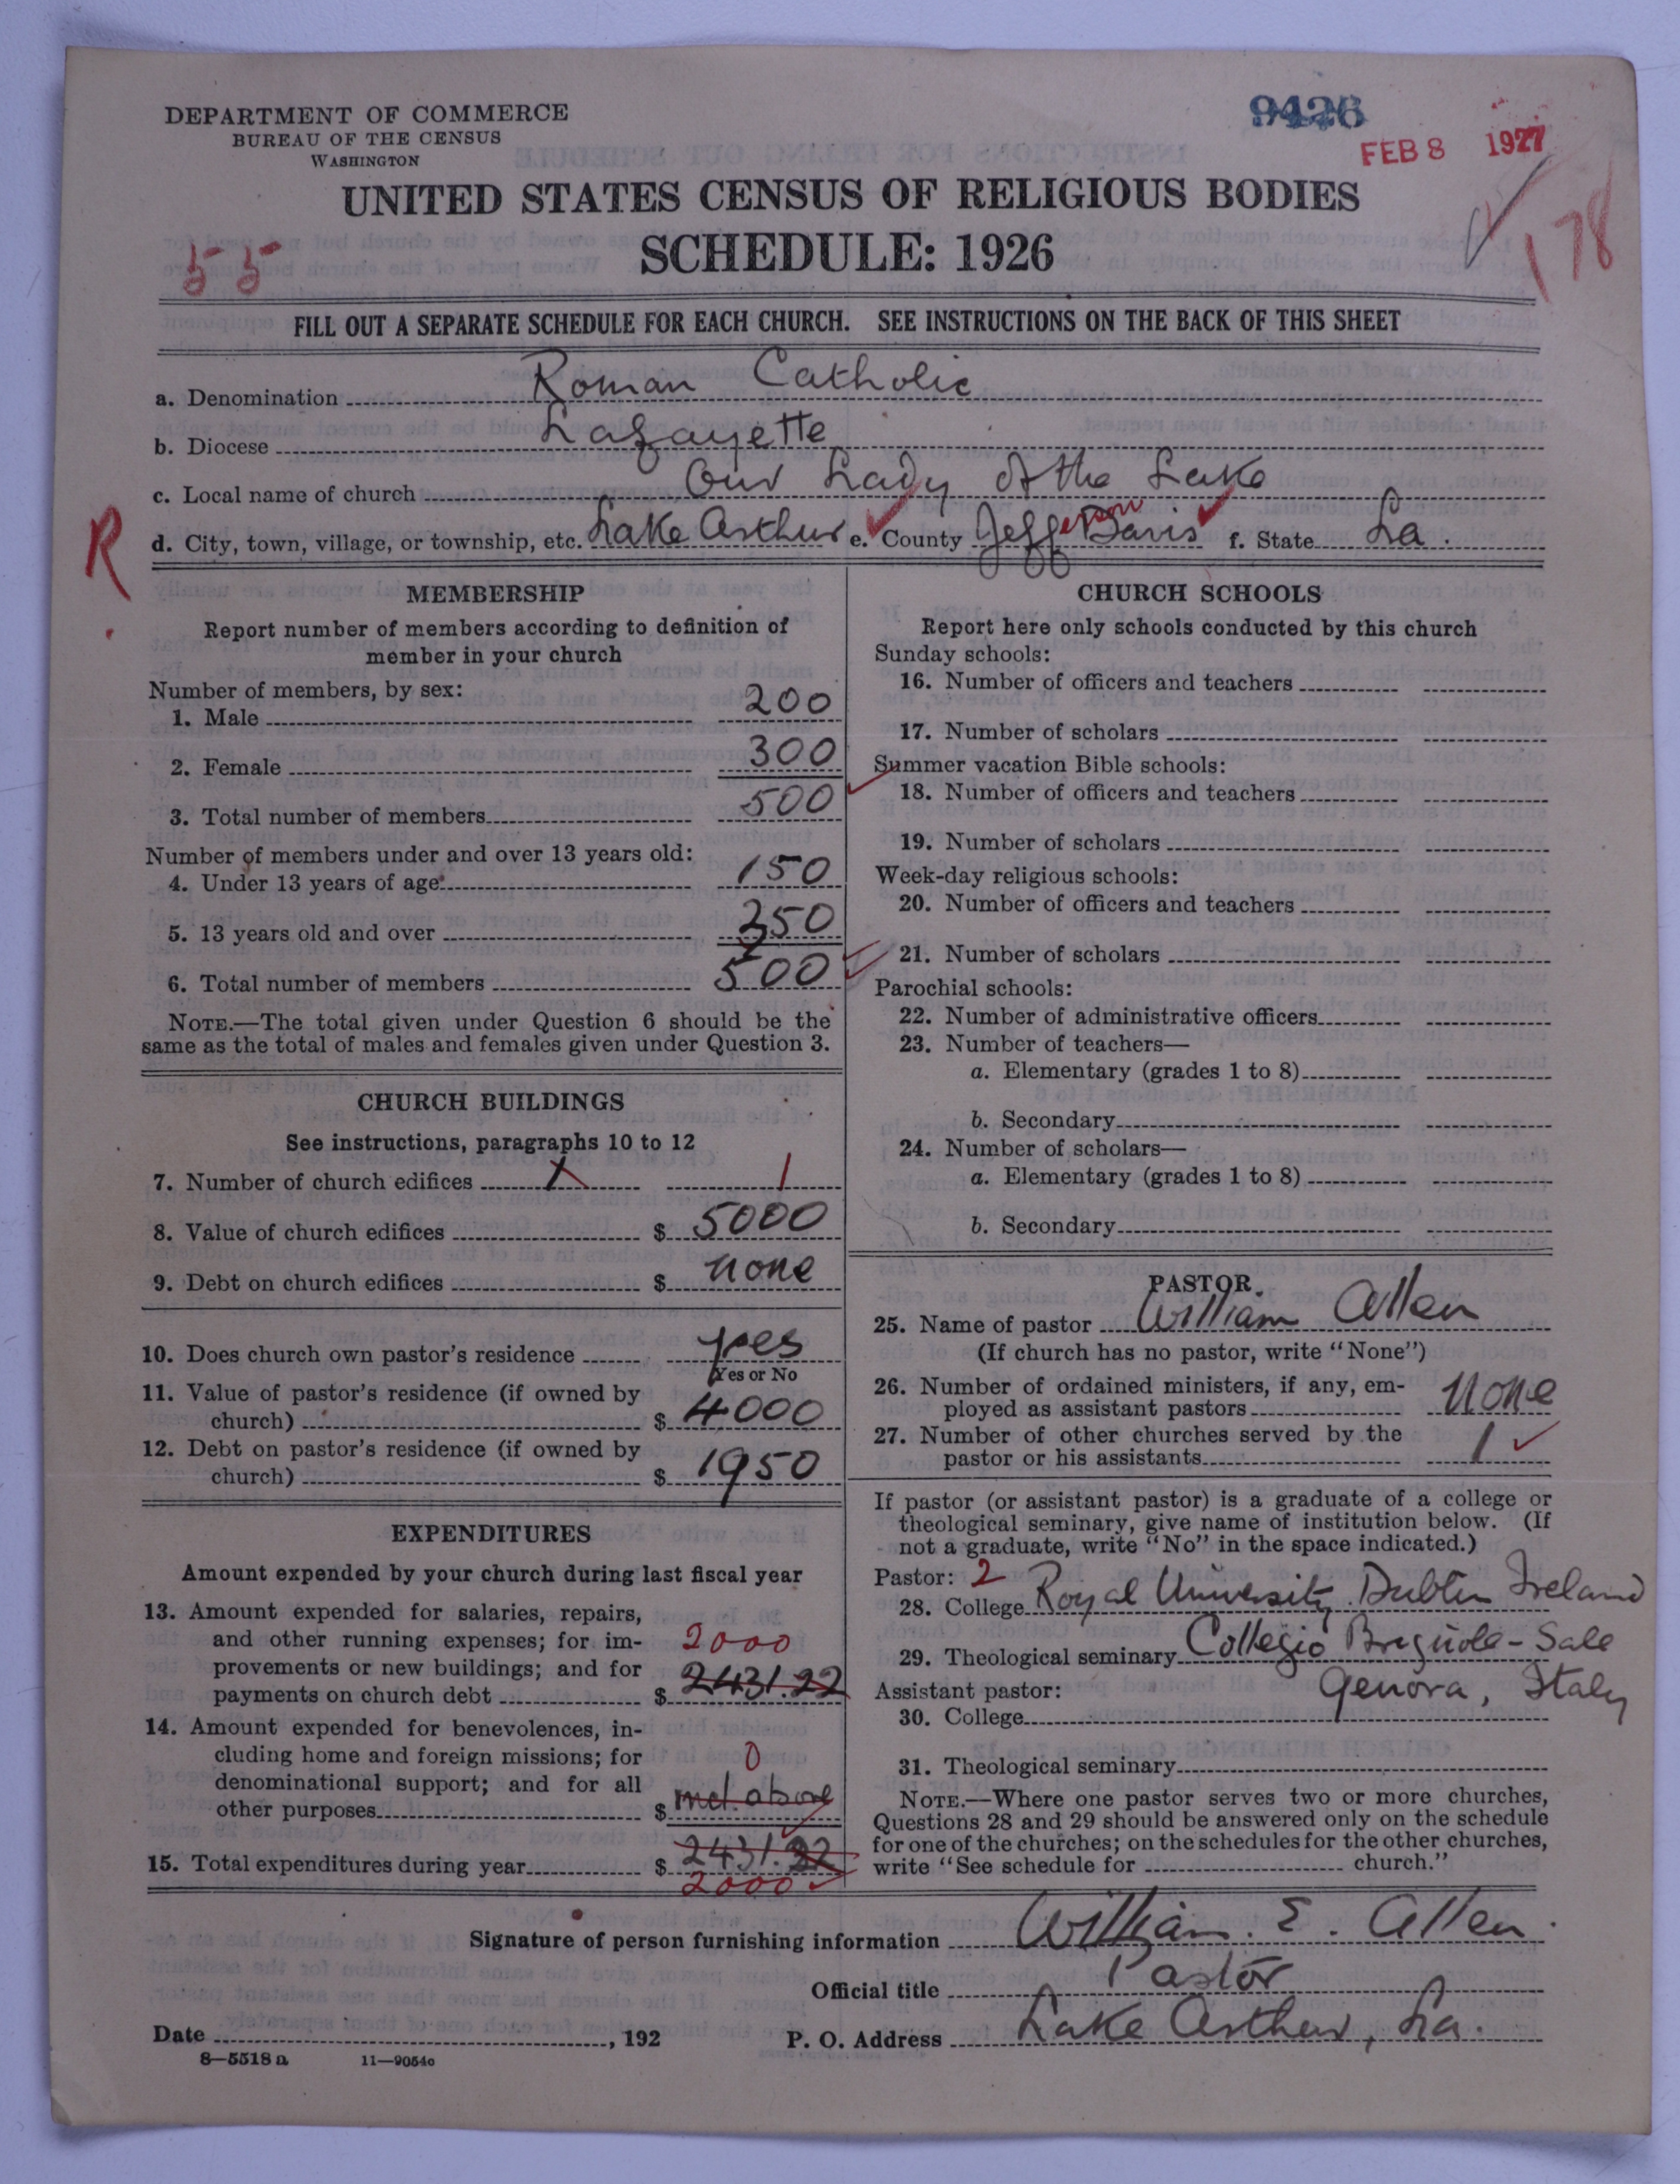 DEPARTMENT OF COMMERCE
BUREAU OF THE CENSUS
WASHINGTON
9426
FEB 8 1927
UNITED STATES CENSUS OF RELIGIOUS BODIES
SCHEDULE: 1926
55
178
FILL OUT A SEPARATE SCHEDULE FOR EACH CHURCH. SEE INSTRUCTIONS ON THE BACK OF THIS SHEET
a. Denomination Roman Catholic
b. Diocese Lafayette
c. Local name of church Our Lady of the Lake
R
d. City, town, village, or township, etc. Lake Arthur e. County Jefferson Davis f. State La.
MEMBERSHIP
Report number of members according to definition of
member in your church
Number of members, by sex:
1. Male 200
2. Female 300
3. Total number of members 500
Number of members under and over 13 years old:
4. Under 13 years of age 150
5. 13 years old and over 350
6. Total number of members 500
NOTE.—The total given under Question 6 should be the
same as the total of males and females given under Question 3.
CHURCH BUILDINGS
See instructions, paragraphs 10 to 12
7. Number of church edifices 1 1
8. Value of church edifices $ 5000
9. Debt on church edifices $ none
10. Does church own pastor's residence yes
Yes or No
11. Value of pastor's residence (if owned by
church) $ 4000
12. Debt on pastor's residence (if owned by
church) $ 1950
EXPENDITURES
Amount expended by your church during last fiscal year
13. Amount expended for salaries, repairs,
and other running expenses; for im- 2000
provements or new buildings; and for
payments on church debt $ 2431.22
14. Amount expended for benevolences, in-
cluding home and foreign missions; for 0
denominational support; and for all
other purposes $ incl. above
15. Total expenditures during year $ 2431.22
2000
CHURCH SCHOOLS
Report here only schools conducted by this church
Sunday schools:
16. Number of officers and teachers
17. Number of scholars
Summer vacation Bible schools:
18. Number of officers and teachers
19. Number of scholars
Week-day religious schools:
20. Number of officers and teachers
21. Number of scholars
Parochial schools:
22. Number of administrative officers
23. Number of teachers—
a. Elementary (grades 1 to 8)
b. Secondary
24. Number of scholars—
a. Elementary (grades 1 to 8)
b. Secondary
PASTOR
25. Name of pastor William Allen
(If church has no pastor, write "None")
26. Number of ordained ministers, if any, em-
ployed as assistant pastors none
27. Number of other churches served by the
pastor or his assistants 1
If pastor (or assistant pastor) is a graduate of a college or
theological seminary, give name of institution below. (If
not a graduate, write "No" in the space indicated.)
Pastor: 2
28. College Royal University Dublin Ireland
29. Theological seminary Collegio Brignole-Sale
Assistant pastor: Genova, Italy
30. College
31. Theological seminary
NOTE.—Where one pastor serves two or more churches,
Questions 28 and 29 should be answered only on the schedule
for one of the churches; on the schedules for the other churches,
write "See schedule for church."
Signature of person furnishing information William. E. Allen.
Official title Pastor
Date , 192 P. O. Address Lake Arthur, La.
8—5518 a 11—9054c